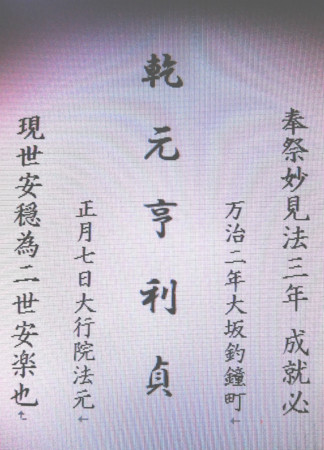 奉祭妙見法三年 成就必
万治二年大坂釣鐘町
乾元亨利貞
正月七日大行院法元
現世安穏為二世安楽也